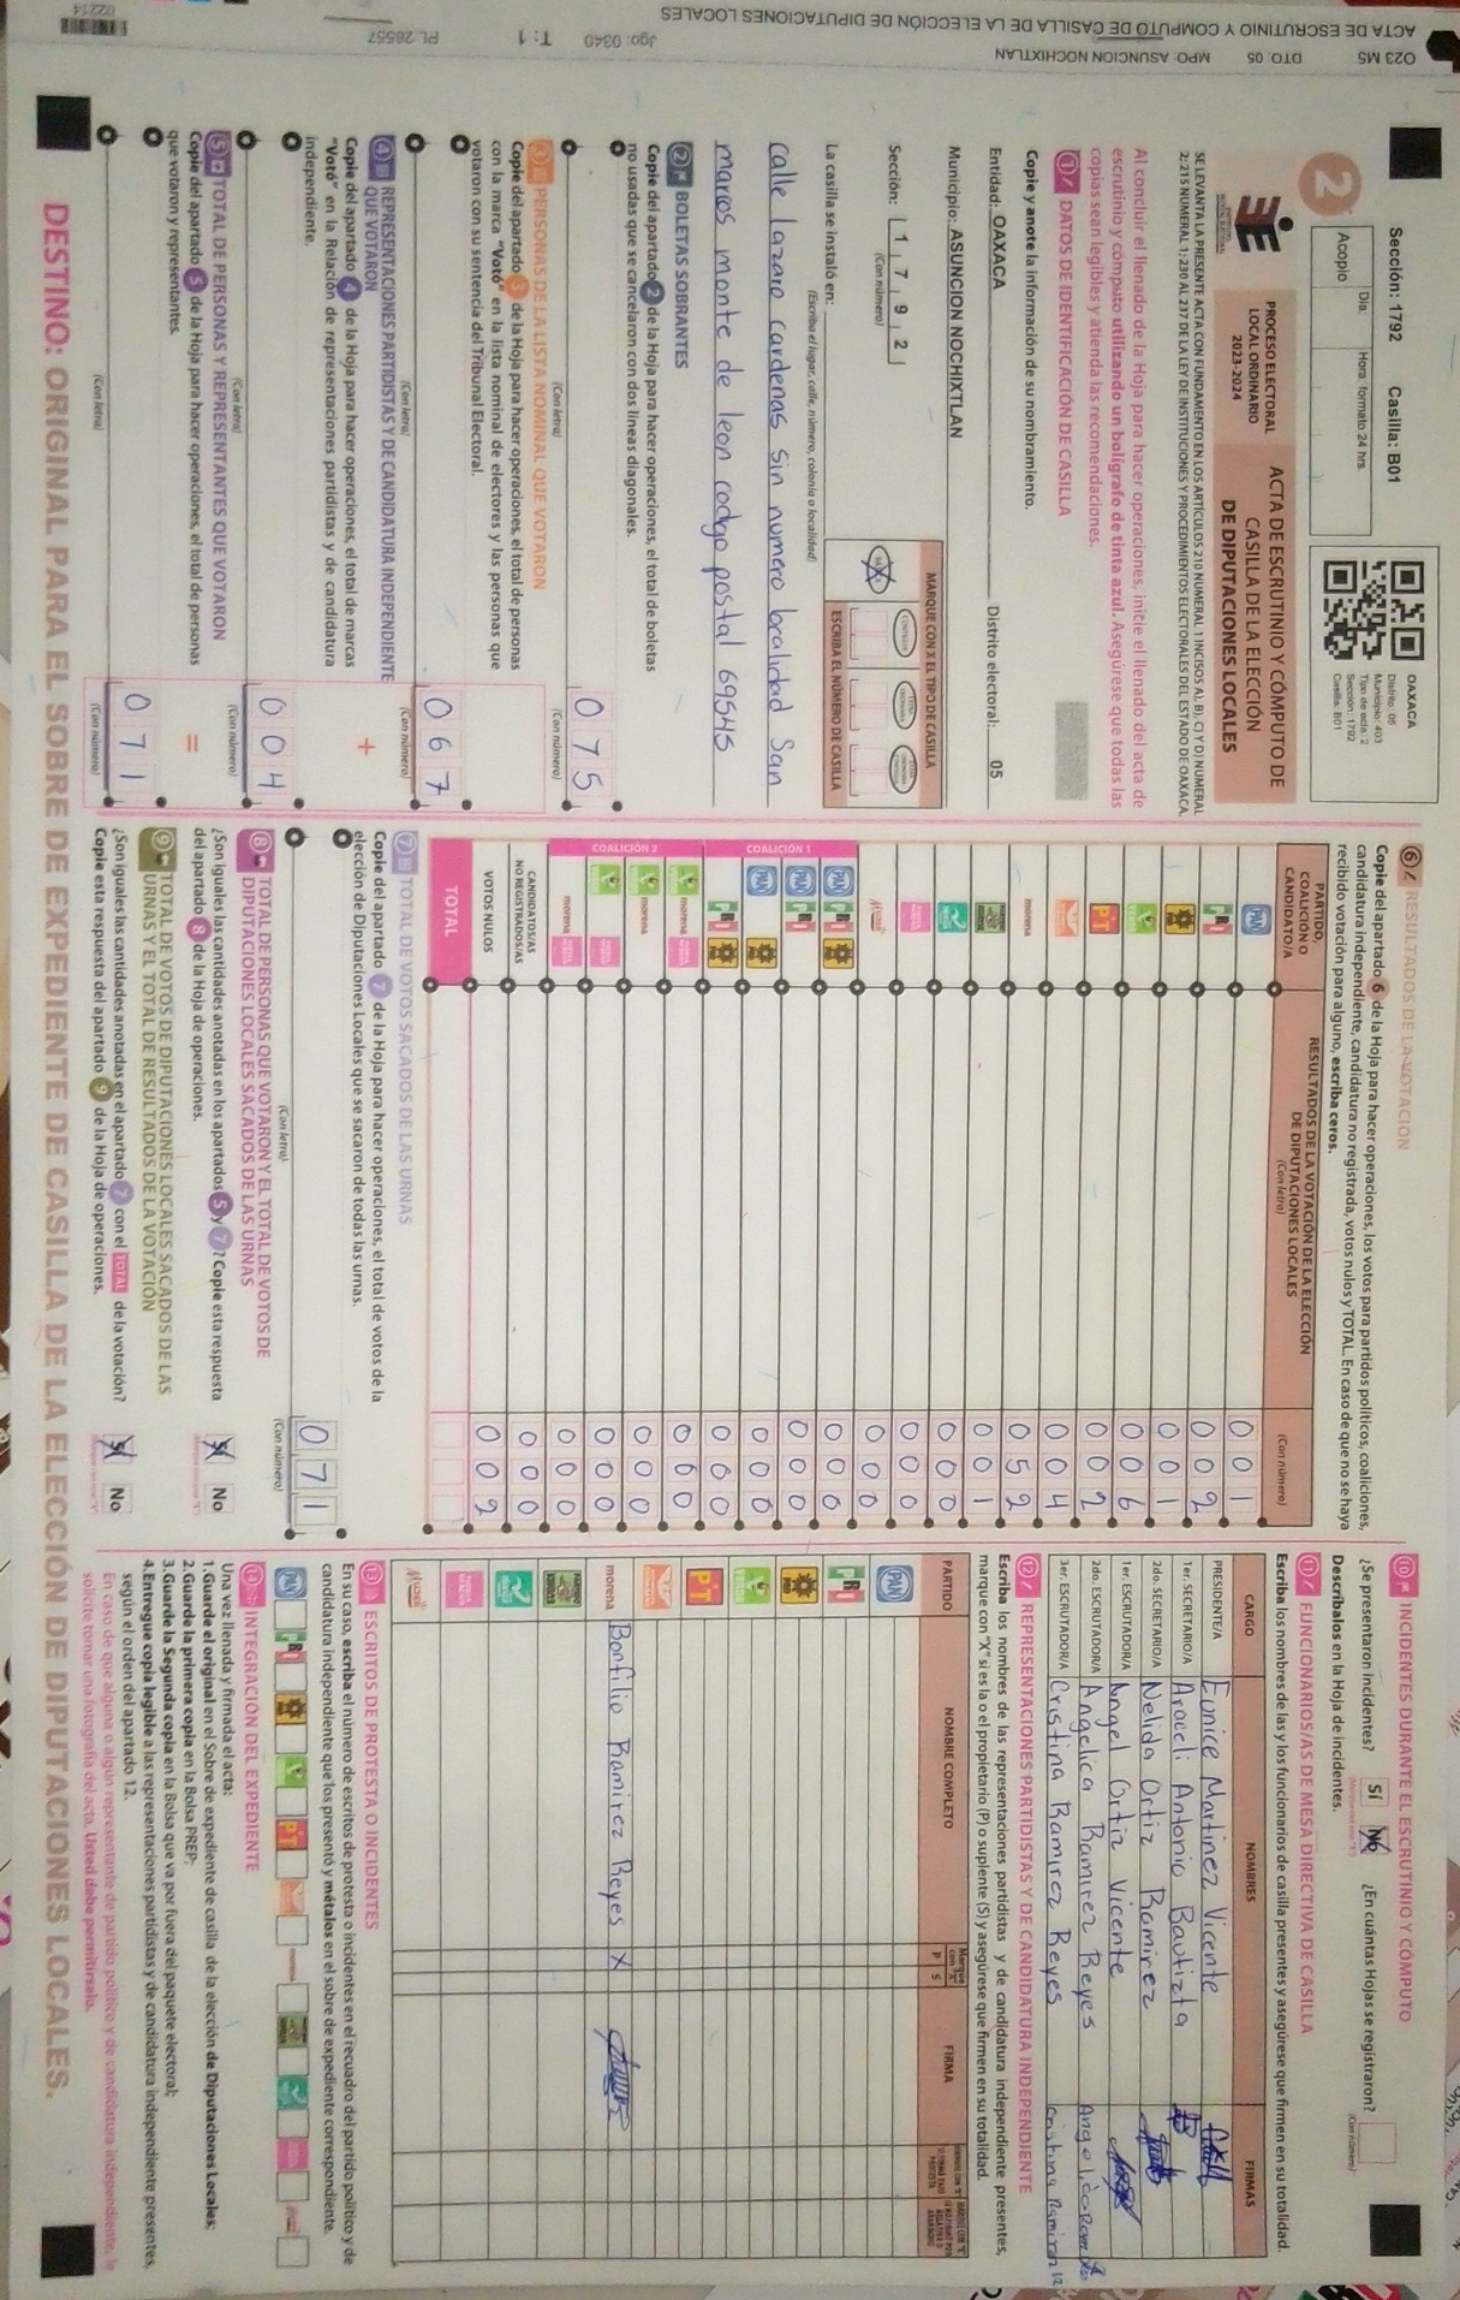 Sección: 1792 Casilla: B01
2
Día. Hora formato 24 hrs.
Acopio
OAXACA
Distrito: 05
Municipio: 403
Tipo de acta: 2
Sección: 1792
Casilla: B01
PROCESO ELECTORAL
LOCAL ORDINARIO
2023-2024
ACTA DE ESCRUTINIO Y CÓMPUTO DE
CASILLA DE LA ELECCIÓN
DE DIPUTACIONES LOCALES
SE LEVANTA LA PRESENTE ACTA CON FUNDAMENTO EN LOS ARTÍCULOS 210 NUMERAL 1 INCISOS A), B), C) Y D) NUMERAL
2; 215 NUMERAL 1; 230 AL 237 DE LA LEY DE INSTITUCIONES Y PROCEDIMIENTOS ELECTORALES DEL ESTADO DE OAXACA.
Al concluir el llenado de la Hoja para hacer operaciones, inicie el llenado del acta de
escrutinio y cómputo utilizando un bolígrafo de tinta azul. Asegúrese que todas las
copias sean legibles y atienda las recomendaciones.
1 DATOS DE IDENTIFICACIÓN DE CASILLA
Copie y anote la información de su nombramiento.
Entidad: OAXACA Distrito electoral: 05
Municipio: ASUNCION NOCHIXTLAN
Sección: 1 7 9 2
(Con número)
MARQUE CON X EL TIPO DE CASILLA
ESCRIBA EL NÚMERO DE CASILLA
La casilla se instaló en:
(Escriba el lugar, calle, número, colonia o localidad)
calle lazaro cardenas sin numero localidad San
marcos monte de leon codgo postal 69545
2 BOLETAS SOBRANTES
Copie del apartado 2 de la Hoja para hacer operaciones, el total de boletas
no usadas que se cancelaron con dos líneas diagonales.
075
(Con letra) (Con número)
3 PERSONAS DE LA LISTA NOMINAL QUE VOTARON
Copie del apartado 3 de la Hoja para hacer operaciones, el total de personas
con la marca "Votó" en la lista nominal de electores y las personas que
votaron con su sentencia del Tribunal Electoral.
067
(Con letra) (Con número)
+
4 REPRESENTACIONES PARTIDISTAS Y DE CANDIDATURA INDEPENDIENTE
QUE VOTARON
Copie del apartado 4 de la Hoja para hacer operaciones, el total de marcas
"Votó" en la Relación de representaciones partidistas y de candidatura
independiente.
004
(Con letra) (Con número)
=
5 TOTAL DE PERSONAS Y REPRESENTANTES QUE VOTARON
Copie del apartado 5 de la Hoja para hacer operaciones, el total de personas
que votaron y representantes.
071
(Con letra) (Con número)
6 RESULTADOS DE LA VOTACIÓN
Copie del apartado 6 de la Hoja para hacer operaciones, los votos para partidos políticos, coaliciones,
candidatura independiente, candidatura no registrada, votos nulos y TOTAL. En caso de que no se haya
recibido votación para alguno, escriba ceros.
PARTIDO, COALICIÓN O CANDIDATO/A
RESULTADOS DE LA VOTACIÓN DE LA ELECCIÓN DE DIPUTACIONES LOCALES
(Con letra) (Con número)
PAN 001
PRI 002
PRD 001
006
PT 002
004
morena 052
001
000
000
000
COALICIÓN 1
PAN PRI 000
PAN PRI 000
PAN 000
PRI 000
COALICIÓN 2
morena 000
morena 000
000
morena 000
CANDIDATOS/AS NO REGISTRADOS/AS 000
VOTOS NULOS 002
TOTAL
7 TOTAL DE VOTOS SACADOS DE LAS URNAS
Copie del apartado 7 de la Hoja para hacer operaciones, el total de votos de la
elección de Diputaciones Locales que se sacaron de todas las urnas.
071
(Con letra) (Con número)
8 TOTAL DE PERSONAS QUE VOTARON Y EL TOTAL DE VOTOS DE
DIPUTACIONES LOCALES SACADOS DE LAS URNAS
¿Son iguales las cantidades anotadas en los apartados 5 y 7? Copie esta respuesta
del apartado 8 de la Hoja de operaciones.
Sí No
9 TOTAL DE VOTOS DE DIPUTACIONES LOCALES SACADOS DE LAS
URNAS Y EL TOTAL DE RESULTADOS DE LA VOTACIÓN
¿Son iguales las cantidades anotadas en el apartado 7 con el TOTAL de la votación?
Copie esta respuesta del apartado 9 de la Hoja de operaciones.
Sí No
10 INCIDENTES DURANTE EL ESCRUTINIO Y CÓMPUTO
¿Se presentaron incidentes? Sí No ¿En cuántas Hojas se registraron?
(Con número)
Descríbalos en la Hoja de incidentes.
11 FUNCIONARIOS/AS DE MESA DIRECTIVA DE CASILLA
Escriba los nombres de las y los funcionarios de casilla presentes y asegúrese que firmen en su totalidad.
CARGO NOMBRES FIRMAS
PRESIDENTE/A Eunice Martinez Vicente
1er. SECRETARIO/A Araceli Antonio Bautizta
2do. SECRETARIO/A Nelida Ortiz Ramirez
1er. ESCRUTADOR/A Angel Ortiz Vicente
2do. ESCRUTADOR/A Angelica Ramirez Reyes
3er. ESCRUTADOR/A Cristina Ramirez Reyes
12 REPRESENTACIONES PARTIDISTAS Y DE CANDIDATURA INDEPENDIENTE
Escriba los nombres de las representaciones partidistas y de candidatura independiente presentes,
marque con "X" si es la o el propietario (P) o suplente (S) y asegúrese que firmen en su totalidad.
PARTIDO NOMBRE COMPLETO P S FIRMA
PAN
PRI
PRD
VERDE
PT
morena Bonfilio Ramirez Reyes X
13 ESCRITOS DE PROTESTA O INCIDENTES
En su caso, escriba el número de escritos de protesta o incidentes en el recuadro del partido político y de
candidatura independiente que los presentó y métalos en el sobre de expediente correspondiente.
PAN PRI PT
14 INTEGRACIÓN DEL EXPEDIENTE
Una vez llenada y firmada el acta:
1.Guarde el original en el Sobre de expediente de casilla de la elección de Diputaciones Locales;
2.Guarde la primera copia en la Bolsa PREP;
3.Guarde la Segunda copia en la Bolsa que va por fuera del paquete electoral;
4.Entregue copia legible a las representaciones partidistas y de candidatura independiente presentes,
según el orden del apartado 12.
En caso de que alguna o algún representante de partido político y de candidatura independiente, le
solicite tomar una fotografía del acta. Usted debe permitírselo.
DESTINO: ORIGINAL PARA EL SOBRE DE EXPEDIENTE DE CASILLA DE LA ELECCIÓN DE DIPUTACIONES LOCALES.
O23 M5 DTO. 05 MPO. ASUNCION NOCHIXTLAN
ACTA DE ESCRUTINIO Y COMPUTO DE CASILLA DE LA ELECCIÓN DE DIPUTACIONES LOCALES
Jgo: 0340 T: 1 PL 26557
02214